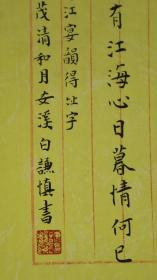 有江海心日暮情何已
江宴韻得址字
茂清和月安溪白謙慎書